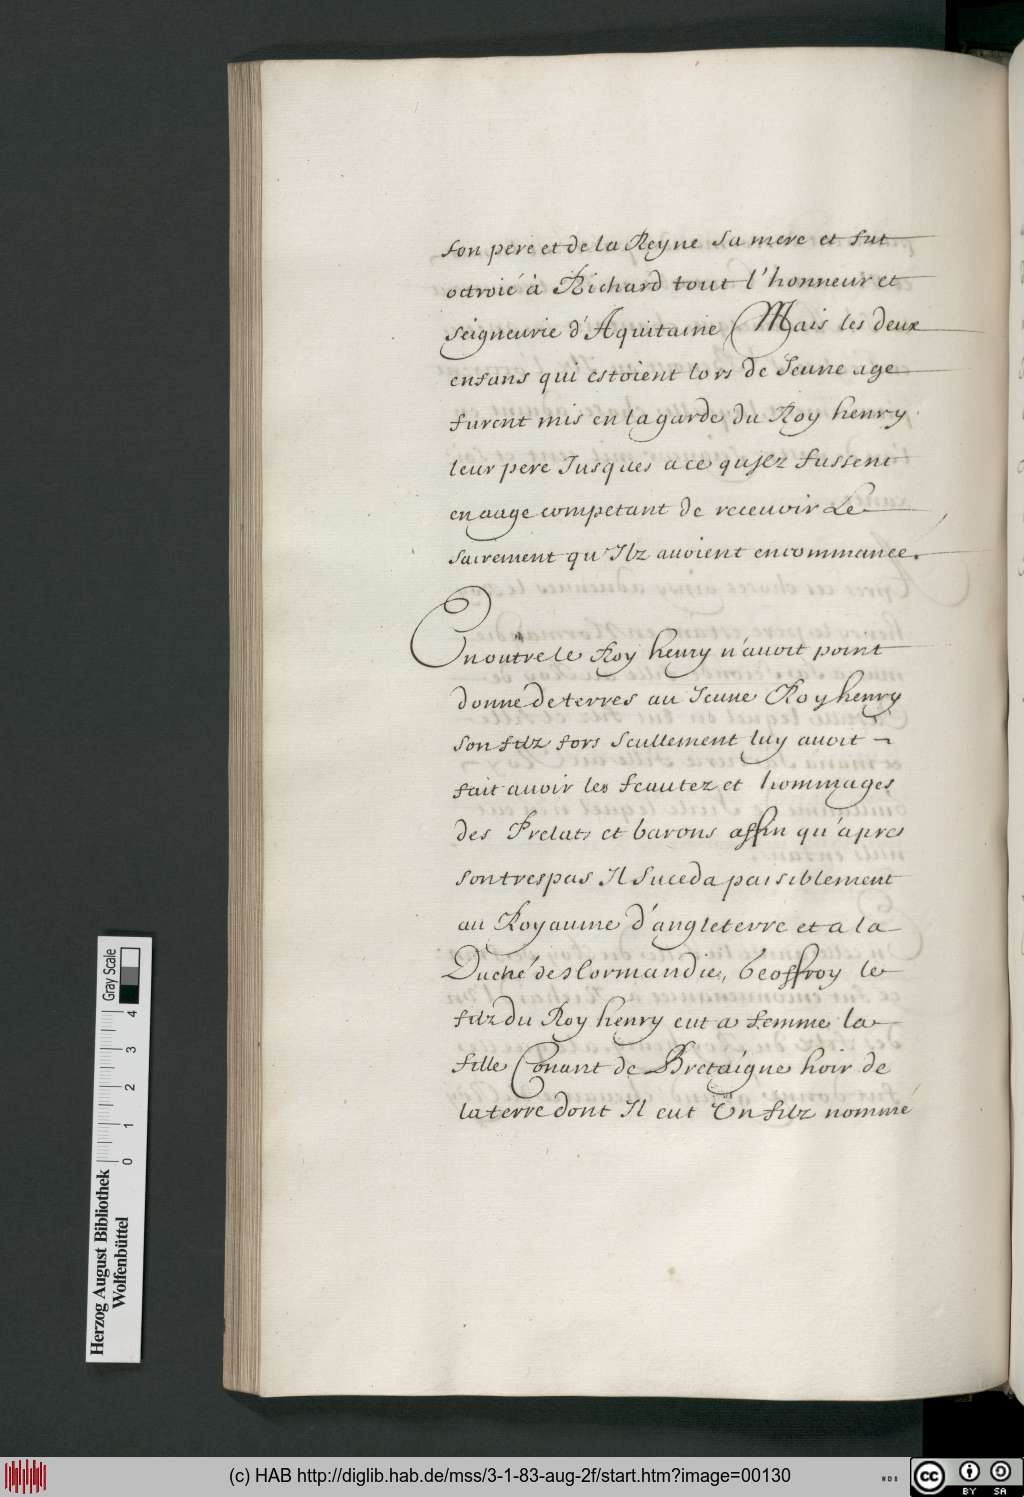 son pere et de la Reyne sa mere et fut
octroié à Richard tout l'honneur et
seigneurie d'Aquitaine, Mais les deux
enfans qui estoient lors de Jeune age
furent mis en la garde du Roy henry
leur pere Jusques a ce qu'Ilz fussent
en aage competant de recevoir Le
sacrement qu'Ilz avoient encommancé.
En outre le Roy henry n'avoit point
donne de terres au Jeune Roy henry
son filz fors seullement luy avoit
fait avoir les feautez et hommages
des Prelats et barons affin qu'apres
son trespas Il suceda paisiblement
au Royaume d'angleterre et a la
Duché de Normandie, Geoffroy le
filz du Roy henry eut a femme la
fille Conant de Bretaigne hoir de
la terre dont Il eut Un filz nommé
Gray Scale
0 1 2 3 4
Herzog August Bibliothek
Wolfenbüttel
(c) HAB http://diglib.hab.de/mss/3-1-83-aug-2f/start.htm?image=00130
WDB
cc BY SA